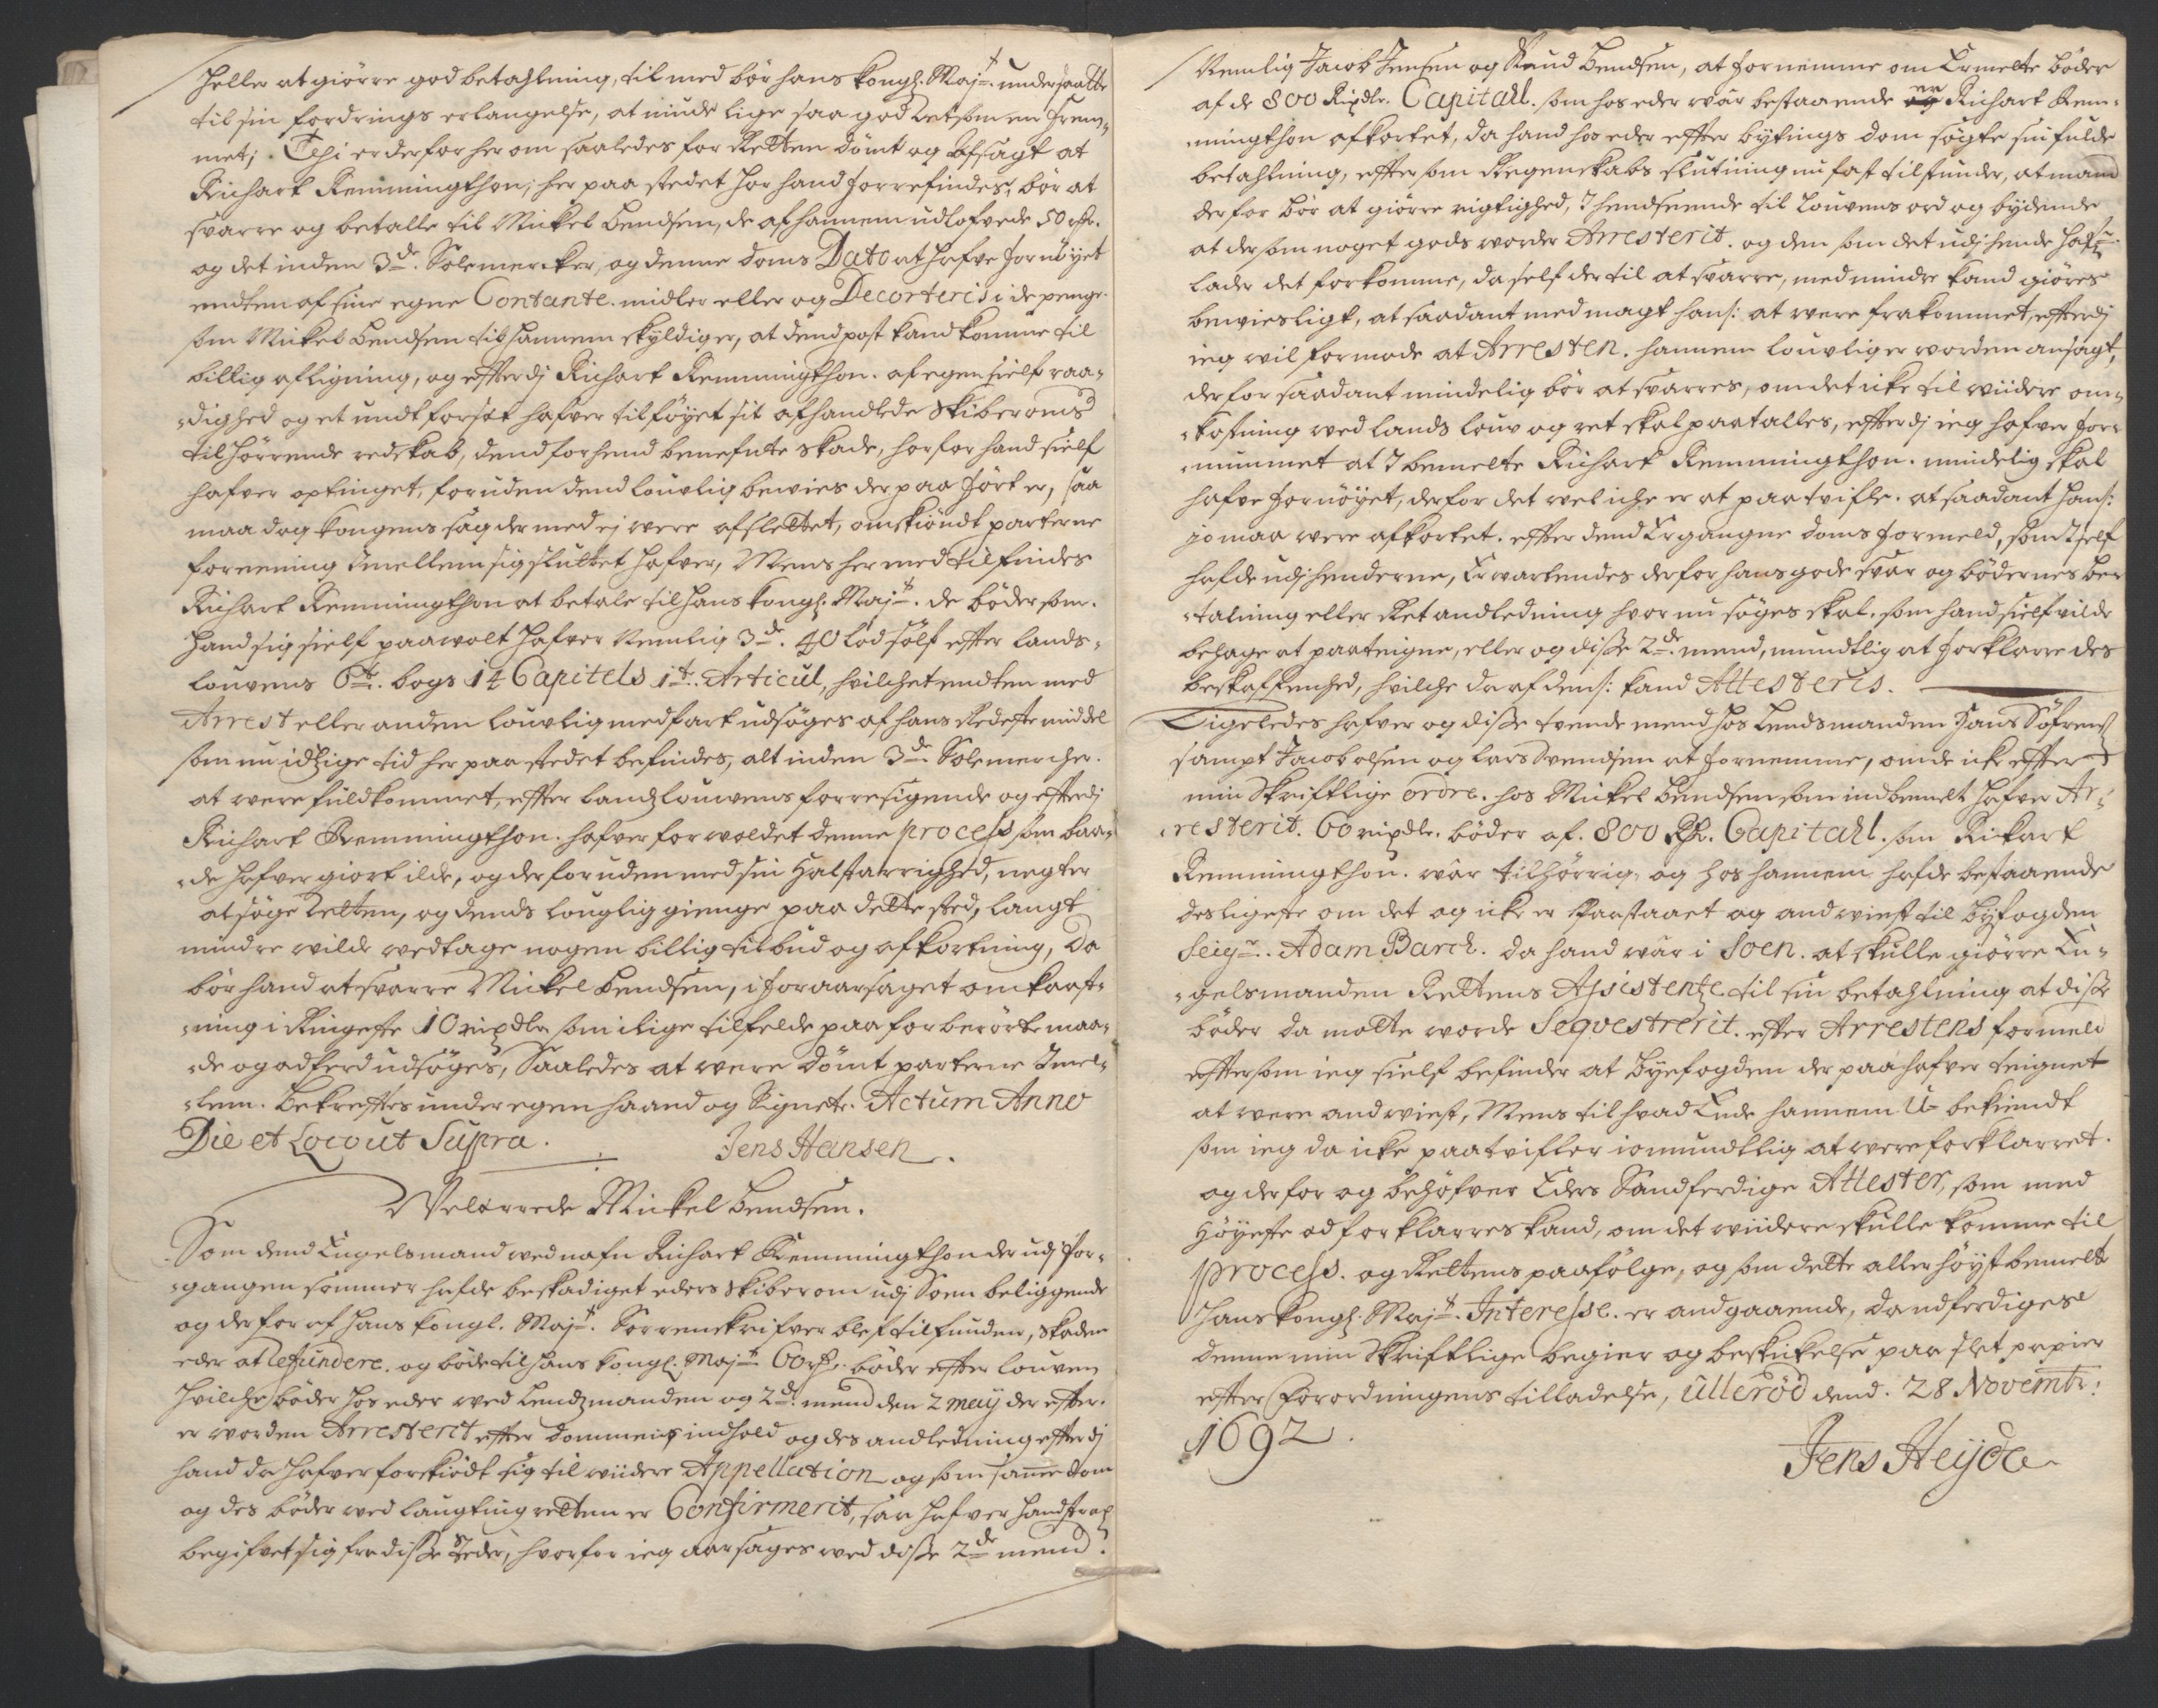 heller at giørre god betahlning, til med bør hans kongl. Maj.t undersaatte
til sin fordrings erlangelse, at niude lige saa god Ret som en frem¬
met; Thi er derfor her om saaledes for Retten dømt og Afsagt at
Richart Remmingthon; her paa stedet hor hand forrefindes, bør at
svarre og betalle til Mickel Bendsen, de af hannem udlofvede 50 rdr.
og det inden 3de. Solemercker, og denne doms Dato at hafve fornøyet
endten af sine egne Contante. midler eller og Decorteris i de penge.
som Mickel Bendsen til hannem skyldiger, at dend post kand komme til
billig afligning, og efterdj Richart Remmingthon. af egen sielf raa¬
dighed og et undt forsæt hafver tilføyet sit afhandlede Skiberoms
tilhørrende redskab, dend forhend benefnte skade, horfor hand sielf
hafver optinget, foruden dend louvlig bewies der paa ført er, saa
maa dog kongens sag der med ej were afslettet, omskiøndt parterne
foreening Imellem sig sluttet hafver, Mens her med tilfindes
Richart Remmingthon at betale til hans kongl. Maj.t de bøder som.
hand sig sielf paawolt hafver Nemlig 3de. 40 lod sølf efter lands¬
louvens 6te. bogs 14 Capitels 1te. Articul, hvilchet endten med
Arrest eller anden louvlig medfart udsøges af hans Redeste middel
som nu idtzige tid her paa stedet befindes, alt inden 3de Solemercher.
at were fuldkommet, efter landzlouwens forresigende og efterdj
Richart Remmingthon. hafver forwoldet denne process som baa¬
de hafver giort ilde, og derforuden med sin Halstarrighed, negter
at søge Retten, og dends louglig gienge paa dette sted, langt
mindre wilde wedtage nogen billig tilbud og afkortning, Da
bør hand at svarre Mickel Bendsen, i foraarsaget omkaast¬
ning i Ringeste 10 rixdlr. som i lige tilfelde paa forberørte maa¬
de og adferd udsøges, Saaledes at were dømt parterne Imel¬
lem. Bekreftes under egen haand og Signete. Actum Anno
Die et Loco ut Supra. Jens Hansen.
Welærrede Mickel Bendsen.
Som dend Engelsmand wed nafn Richart Remmingthon der udj for¬
gangen sommer hafde beskadiget eders Skiberom udj Soen beliggende
og derfor af hans kongl. Maj.t. Sorrenskrifver blef tilfunden, skaden
eder at Refundere. og bøde til hans kongl. Maj.t 60 rdr. bøder efter louven
hvilche bøder hos eder wed Lendzmanden og 2de. mend den 2 maij der efter.
er worden Arresterit efter dommens indhold og des andledning efterdj
hand da hafver forskiødt sig til widere Appellation og som samme dom
og des bøder wed laugting retten er Confirmerit, saa hafver hand strax
begifvet sig fra disse Steder, hvorfor ieg aarsages wed disse 2de mend.
Nemlig Jacob Jensen og Knud Bendsen, at fornemme om Ermelte bøder
af de 800 Rixdlr. Capitall. som hos eder wår bestaaende er Richart Rem¬
mingthon afkortet, da hand hos eder efter bytings dom søgte sin fulde
betahlning, eftersom Regenskabs slutning nu fast tilstunder, at mand
derfor bør at giørre rigtighed, I hendseende til Louvens ord og bydende
at der som noget gods worder Arresterit. og den som det udj hende hafr
lader det forkomme, da self der til at svarre, med mindre kand giøres
bewiesligt, at saadant med magt hans: at were frakommet, efterdj
ieg wil formode at Arresten. hannem louvlig er worden ansagt,
derfor saadant mindelig bør at svarres, om det icke til widere om¬
kostning wed lands louv og ret skal paatalles, efterdj ieg hafver for¬
nummet at I bemelte Richart Remmingthon. mindelig skal
hafve fornøyet, derfor det vel iche er at paatvifle. at saadant hans:
jo maa were afkortet. efter dend Ergangne doms formeld, som I self
hafde udj henderne, Erwartendes derfor hans gode svar og bødernes be¬
talning eller Ret andledning hvor nu søges skal. som hand sielf wilde
behage at paateigne, eller og disse 2de. mend, mundtlig at forklarre des
beskaffenhed, hvilche da af dens: kand Attesteris.
Ligeledes hafver og disse tvende mend hos Lendsmanden Hans Søfrens:
sampt Jacob Olsen og Lars Svendsen at fornemme, om de icke efter
min Skriftlige ordre. hos Mickel Bendsen som indbemelt hafver Ar¬
resterit. 60 rixdlr. bøder af. 800 Rdr. Capitall. som Rickart
Remmingthon. wår tilhørrig. og hos hannem hafde bestaaende
desligeste om det og icke er Paastaaet og andwiest til Byfogden
Seigr. Adam Barch. da hand wår i Soen. at skulle giørre En¬
gelsmanden Rettens Assistentze til sin betahlning at disse
bøder da motte worde Seqvestrerit. efter Arrestens formeld
eftersom ieg sielf befinder at Byefogden der paa hafver teignet
at were andwiest, Mens til hvad Ende hannem U bekiendt
som ieg da icke paatvifler io mundtlig at were forklarret.
og derfor og behøfver Eders Sandferdige Attester, som med
Høyeste æd forklarres kand, om det widere skulle komme til
process. og Rettens paafølge, og som dette aller høyst bemelte
Hans kongl. Maj.t Interesse. er andgaaende, da udferdiges
denne min Skriftlige begier og beskickelse paa slet papier
efter Forordningens tilladelse, Ullerød dend. 28 Novembr:
1692.
Jens Heyde